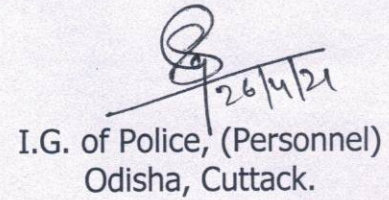 26/4/21
I.G. of Police, (Personnel)
Odisha, Cuttack.